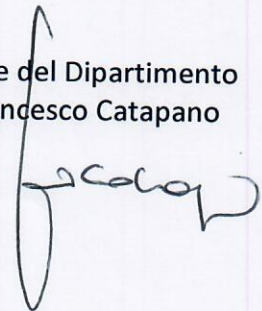 e del Dipartimento
ncesco Catapano